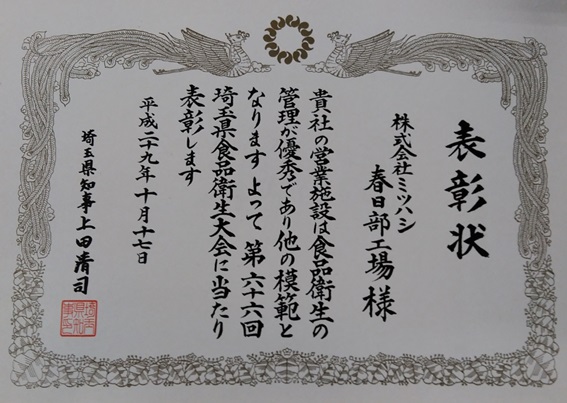 表彰状
株式会社ミツハシ
春日部工場様
貴社の営業施設は食品衛生の
管理が優秀であり他の模範と
なります よって 第六十六回
埼玉県食品衛生大会に当たり
表彰します
平成二十九年十月十七日
埼玉県知事上田清司